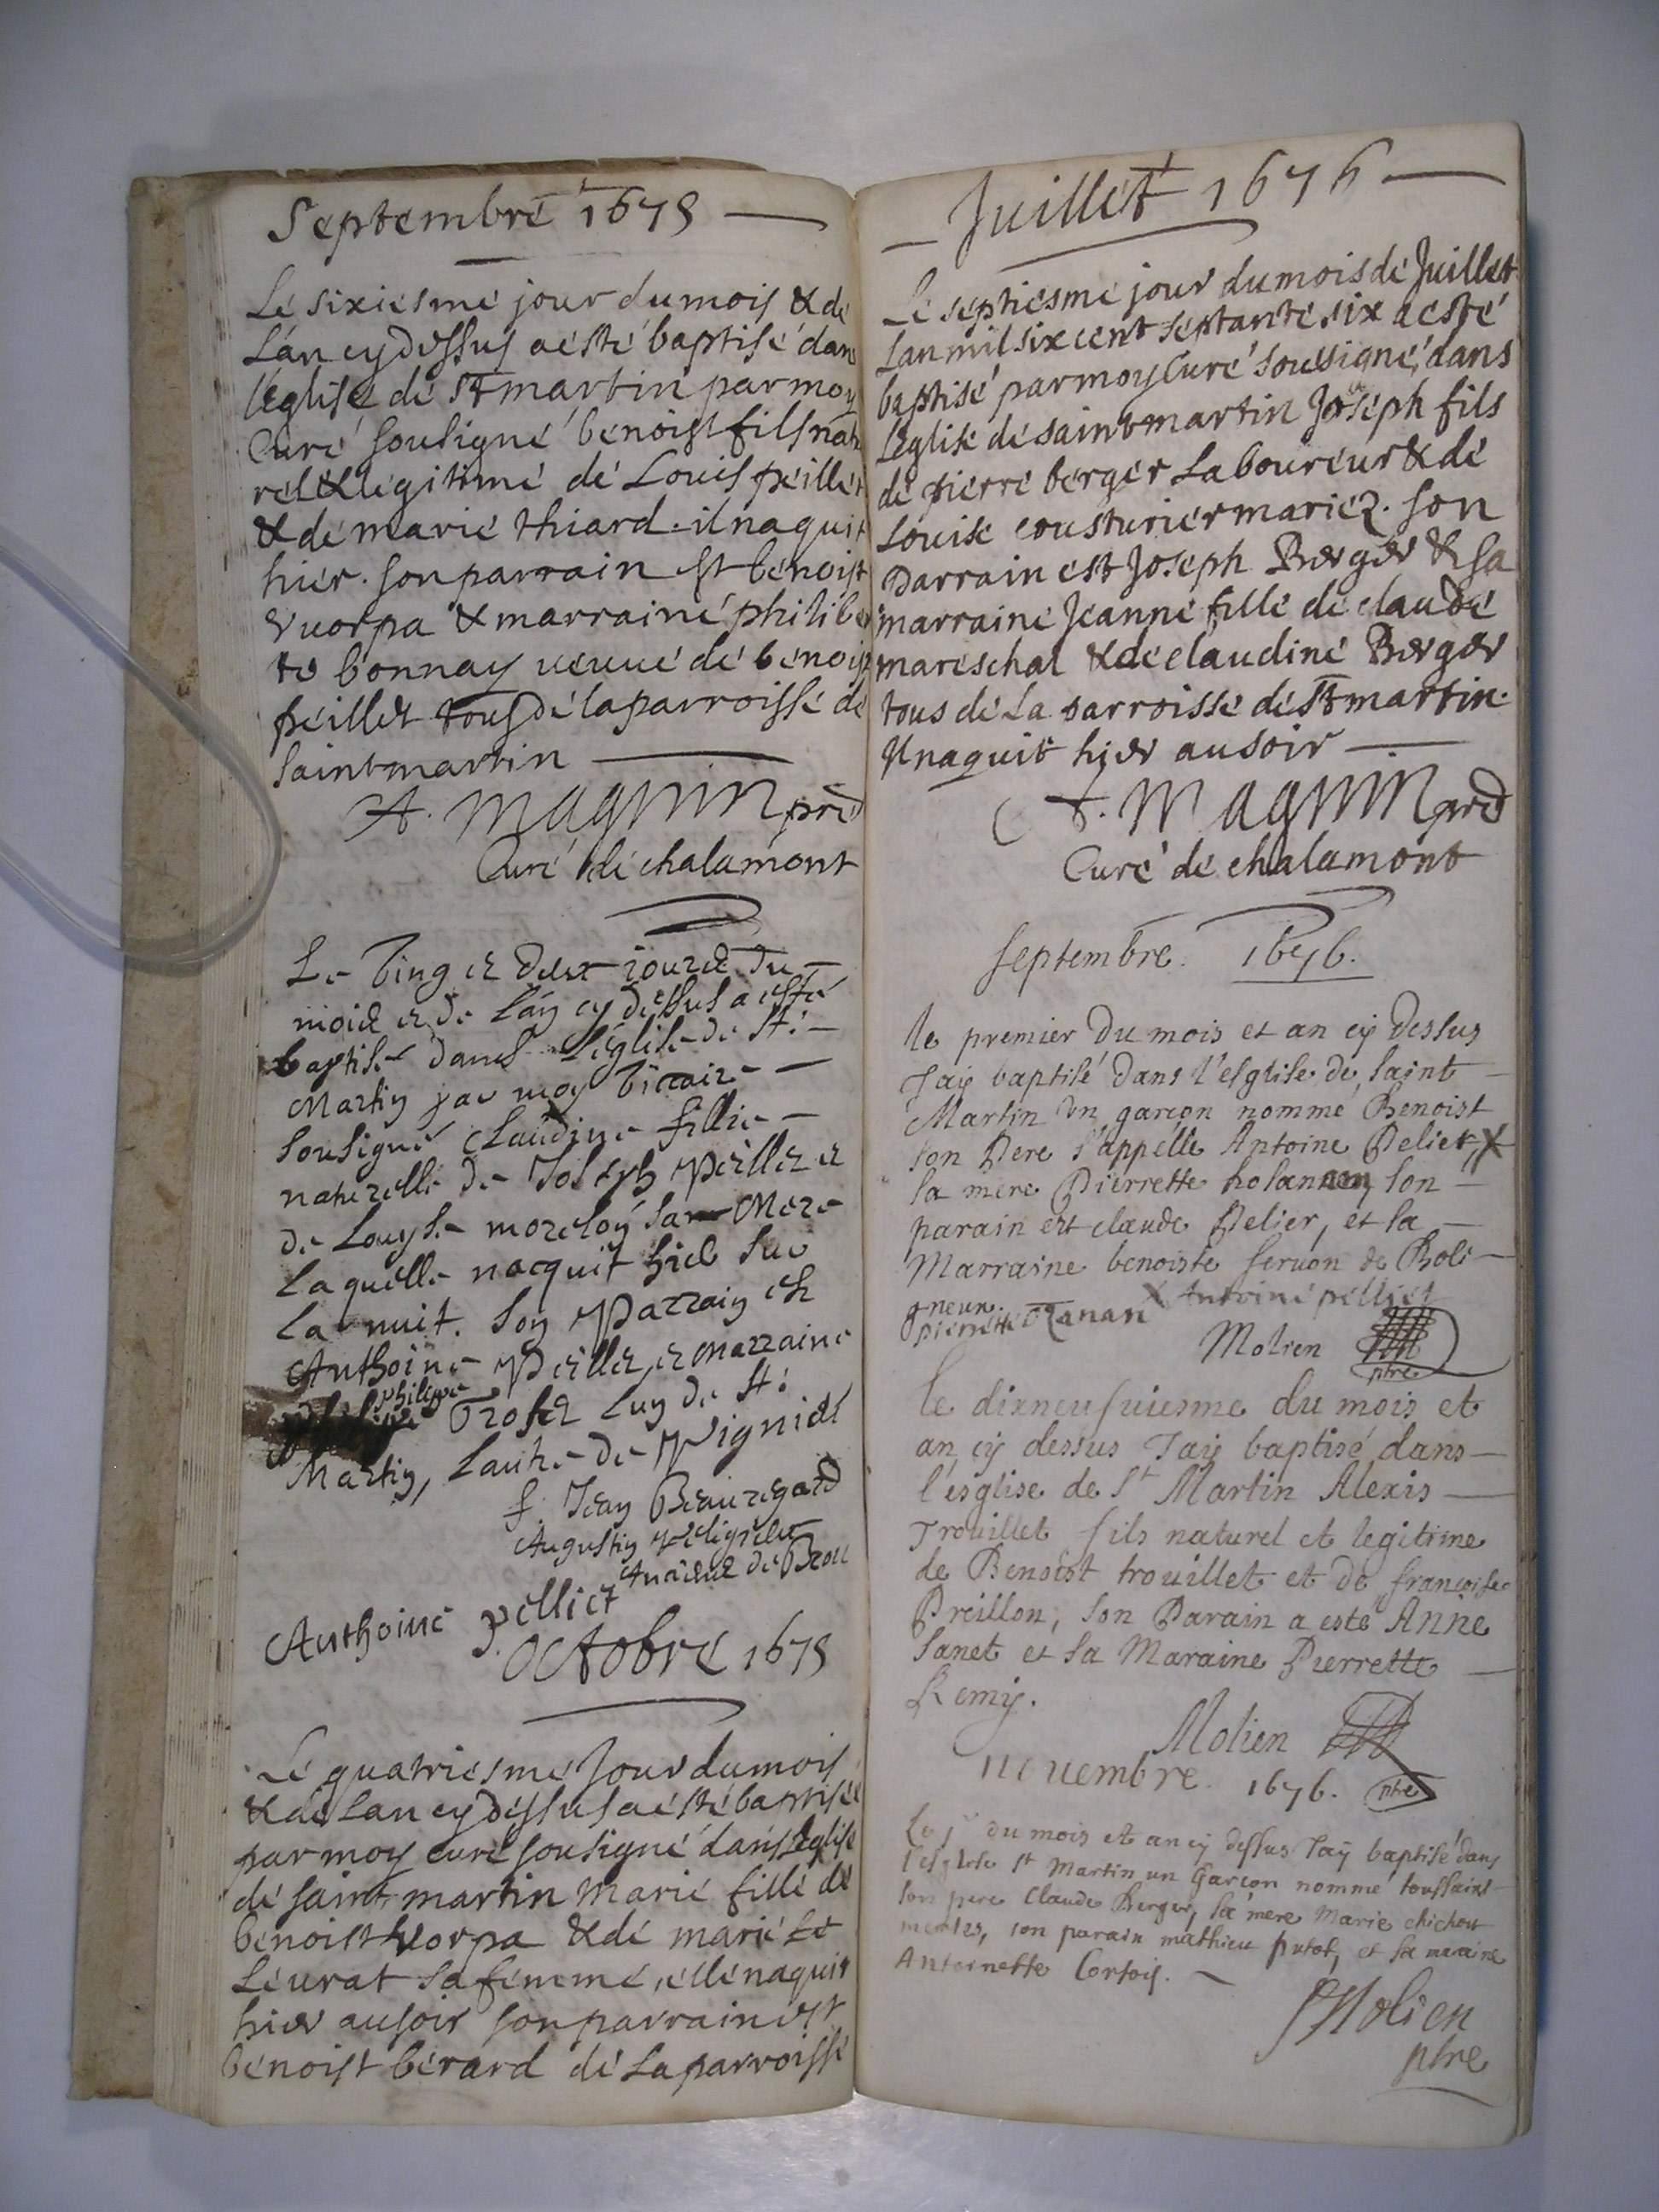 Septembre 1675
Le sixiesme jour du mois & de
Lan cy dessus a esté baptisé dans
l'eglise de St martin par moy
Curé sousigné benoist fils natu
rel & legitime de Louis peillet
& de marie thiard. il naquit
hier. son parrain est benoist
vuorpa & marraine philiber
te bonnay veuue de benoist
peillet tous de la parroisse de
saint martin
A. Magnin pre
Curé de chalamont
Le vingt et deux jour du
mois et de l'an cy dessus a esté
baptisé dans l'eglise de St
Martin par moy vicaire
sousigné Claudine fillie
naturelle de Joseph Peillet et
de Louyse moreloy sa Mere
laquelle nacquit hier sur
la nuit. Son Parrain est
Anthoine Peillet, et Marraine
philippe Trofet luy de St
Martin, l'autre de
f. Jean Beauregard
Augustin religieux
de Brou
Anthoine pelliet
Octobre 1675
Le quatriesme Jour du mois
& de Lan cy dessus a esté baptisée
par moy curé sousigné dans leglise
de saint martin Marie fille de
benoist vorpa & de marie
Leurat sa femme, elle naquit
hier au soir son parrain est
benoist berard de La parroisse
Juillet 1676
Le septiesme jour du mois de Juillet
Lan mil six cent septante six a esté
baptisé par moy Curé soussigné, dans
Leglise de saint martin Joseph fils
de pierre berger Laboureur & de
Louise cousturier mariez. Son
parrain est Joseph Berger & sa
marraine Jeanne fille de claude
mareschal & de claudine Berger
tous de La parroisse de St martin.
Il naquit hier au soir
A. Magnin pre
Curé de chalamont
septembre. 1676.
le premier du mois et an cy dessus
J'ay baptisé dans l'esglise de saint
Martin un garçon nommé Benoist
son Pere s'appelle Antoine Peliet, X
la mere Pierrette holannan son
parain est claude Pelier, et la
Marraine benoiste seruon de Boli
gneux. X Antoine pelliet
pierrette Ozanan
Molien
ptre
le dixneufuiesme du mois et
an cy dessus J'ay baptisé dans
l'esglise de St Martin Alexis
Trouillet fils naturel et legitime
de Benoist trouillet et de françoise
Preillon, son Parain a esté Anne
Janet et sa Maraine Pierrette
Remy.
Molien
ptre
Nouembre 1676.
Le 1r du mois et an cy dessus J'ay baptisé dans
l'esglise st Martin un Garçon nommé toussaint
son pere Claude Berger, sa mere Marie chichou
son parain mathieu putot, et sa maraine
Antoinette Cortois.
Molien
ptre